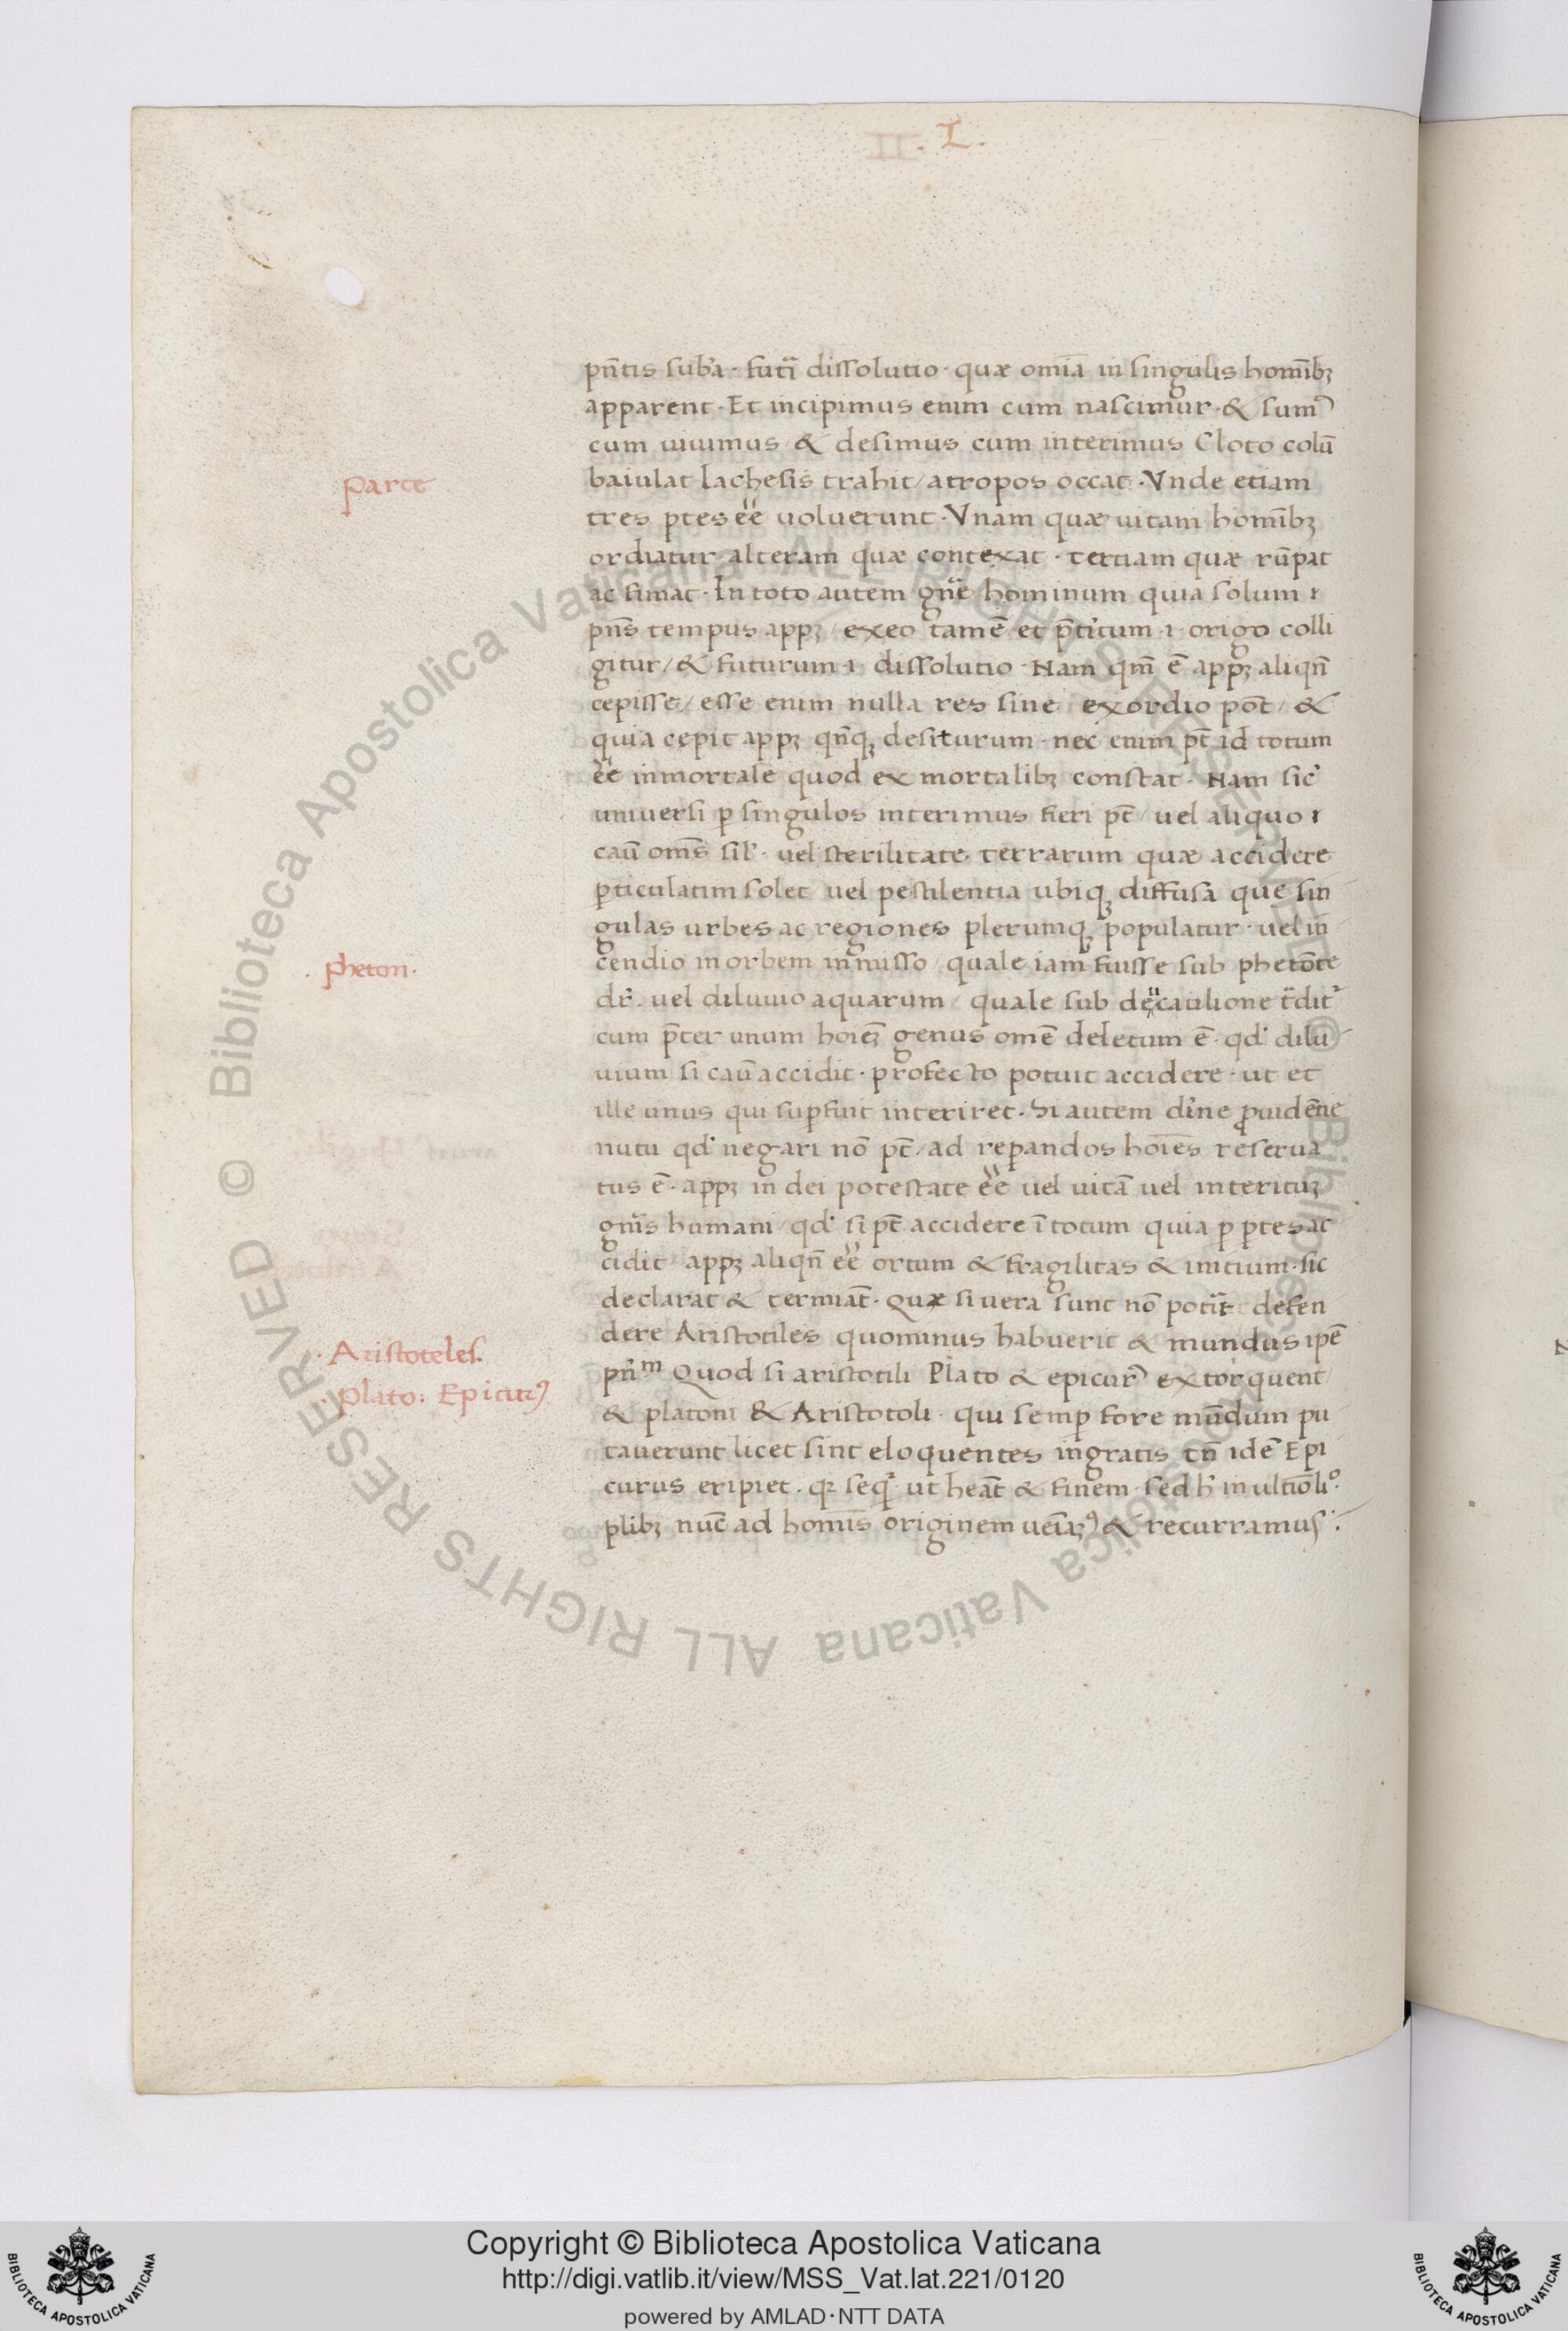 II. L.
pn̄tis sub̄a · futī dissolutio · quæ om̄ia in singulis homībꝫ
apparent · Et incipimus enim cum nascimur · & sumꝰ
cum uiuimus & desimus cum interimus Cloto colū
Parce
baiulat lachesis trahit / atropos occat · Vnde etiam
tres ꝑtes ēē uoluerunt · Vnam quæ uitam homībꝫ
ordiatur alteram quæ contexat · tertiam quæ rūpat
ac finiat · In toto autem gn̄e hominum quia solum ı
pn̄s tempus appꝫ / exeo tamē et p̄titum · i · origo colli
gitur / & futurum · i · dissolutio · Nam qm̄ ē appꝫ aliqn̄
cepisse / esse enim nulla res sine exordio pōt / &
quia cepit appꝫ qn̄qꝫ desiturum · nec enim pt̄ id totum
ēē inmortale quod ex mortalibꝫ constat · Nam sic̄
uniuersi ꝑ singulos interimus fieri pt̄ / uel aliquo ı
caū oms̄ sil̄ · uel sterilitate terrarum quæ accidere
ꝑticulatim solet / uel pestilentia ubiqꝫ diffusa que sin
gulas urbes ac regiones plerumqꝫ populatur · uel in
. pheton .
cendio in orbem inmisso / quale iam fuisse sub phetōte
dr̄ . uel diluuio aquarum / quale sub deucaulione t̄ditᷣ
cum p̄ter unum hoīeꝫ genus omē deletum ē · qd̄ dilu
uium si caū accidit · profecto potuit accidere · ut et
ille unus qui suꝑfuit interiret · Si autem diⁱne ꝓuidētie
nutu qd̄ negari nō pt̄ / ad reꝑandos hoīes reserua
tus ē · appꝫ in dei potestate ēē uel uitā uel interituꝫ
gnīs humani / qd̄ si pt̄ accidere ī totum quia ꝑ ꝑtes ac
cidit appꝫ aliqn̄ ēē ortum & fragilitas & initium · sic
declarat & termiāt · Quæ si uera sunt nō potīt defen
dere Aristotiles quominus habuerit & mundus ipē
· Aristoteles.
pn̄ᵐ Quod si aristotili Plato & epicurꝰ extorquent
. Plato : Epicurꝰ
& platoni & Aristotoli · qui semꝑ fore mūdum pu
tauerunt licet sint eloquentes ingratis tn̄ idē Epi
curus eripiet . qꝛ seqᷣ ut heāt & finem · sed h̄ in ultiō li°.
ꝑlibꝫ nūc ad homīs originem ueīaꝫꝰ & recurramus :
Copyright © Biblioteca Apostolica Vaticana
http://digi.vatlib.it/view/MSS_Vat.lat.221/0120
powered by AMLAD · NTT DATA
Biblioteca Apostolica Vaticana ALL RIGHTS RESERVED ©
BIBLIOTECA APOSTOLICA VATICANA
BIBLIOTECA APOSTOLICA VATICANA